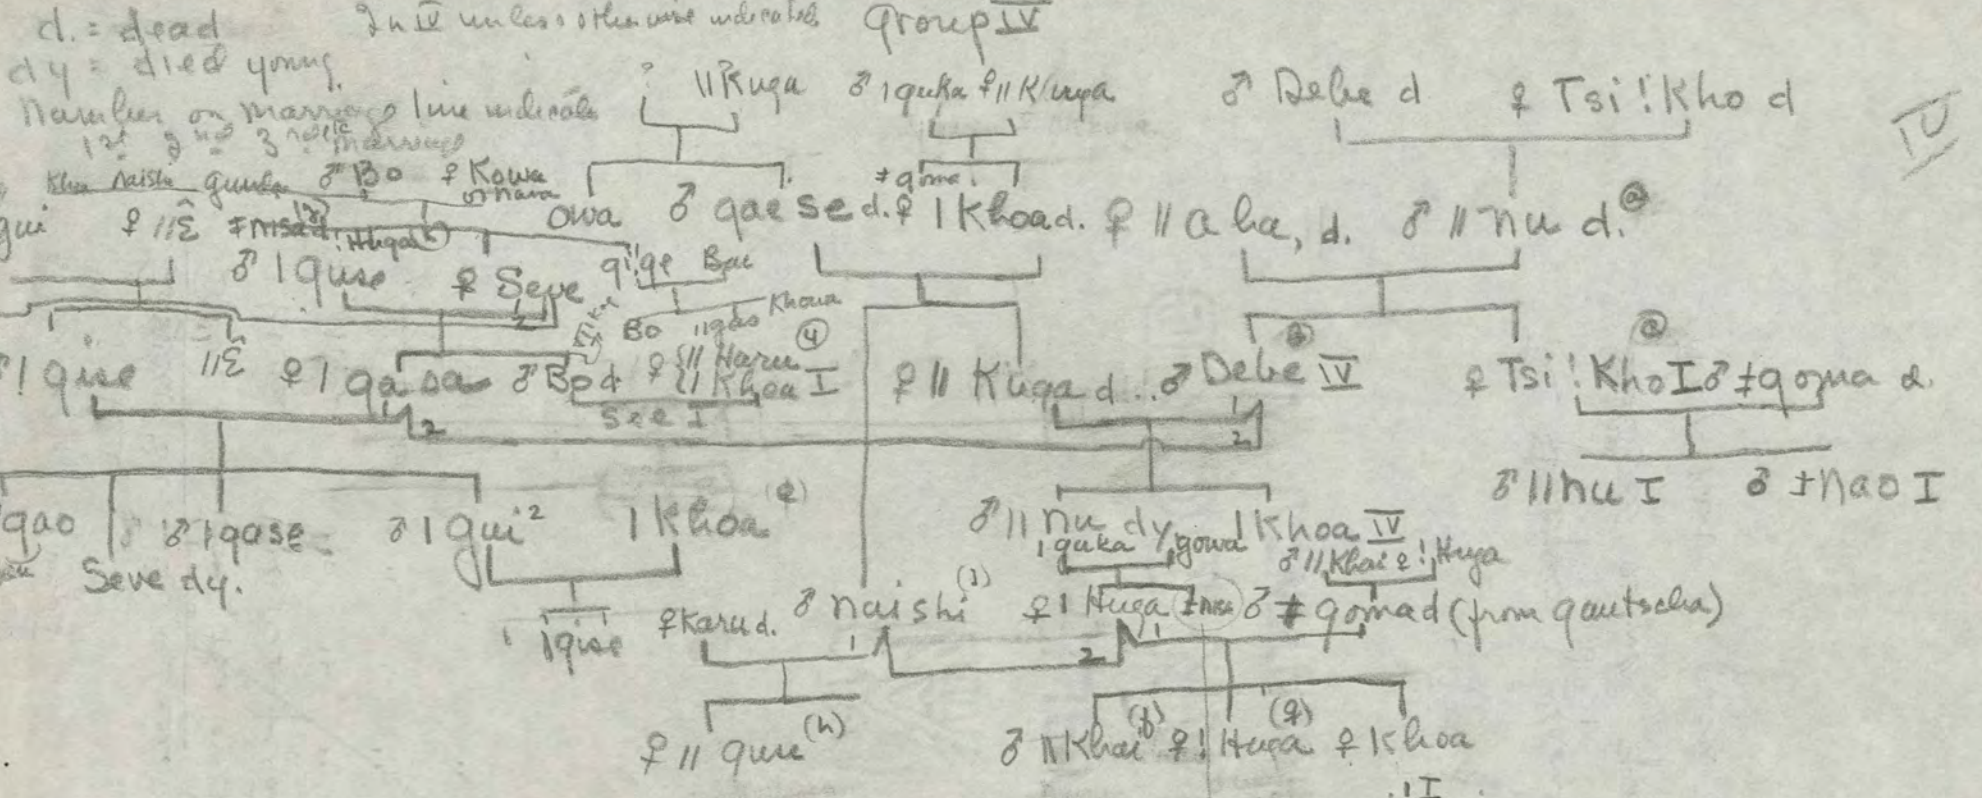 d. = dead In IV unless otherwise indicated Group IV
dy = died young
Number on marriage line indicates
1st 2nd 3rd etc marriage
? ǁKuga ♂ ǀguka ♀ ǁKǃuya ♂ Debe d ♀ Tsiǃkho d
IV
Khoa naishi gunda ♂ Bo ♀ Kowa
or nana
ǂgoma
gui ♀ ǁƐ̂ ǂnisa d. owa ♂ gaese d. ♀ ǀKhoa d. ♀ ǁaha, d. ♂ ǁnu d.
♂ ǀguse ♀ Seve Bau
Bo ǁgao Khoua
♂ ǀgise ǁƐ̂ ♀ ǀgasa ♂ Bo d ♀ {ǁHaru ④ ǀKhoa I ♀ ǁKuga d. ♂ Debe IV ♀ TsiǃKho I ♂ ǂgoma d.
See I
2
1
2
♂ ǁnu I ♂ ǂnao I
gao ♂ ǀgase ♂ ǀgui² ǀKhoa ♂ ǁnu dy ǀKhoa IV
Seve dy. ǀguka gowa ♂ ǁKhai ♀ ǃHuga
ǀgise ♀ Karu d. ♂ naishi (1) ♀ ǀHuga ǂnisa ♂ ǂgoma d (from gautscha)
1 2 1
♀ ǁguse (h) ♂ ǁKhai (f) ♀ ǃHuga (g) ♀ Khoa
I